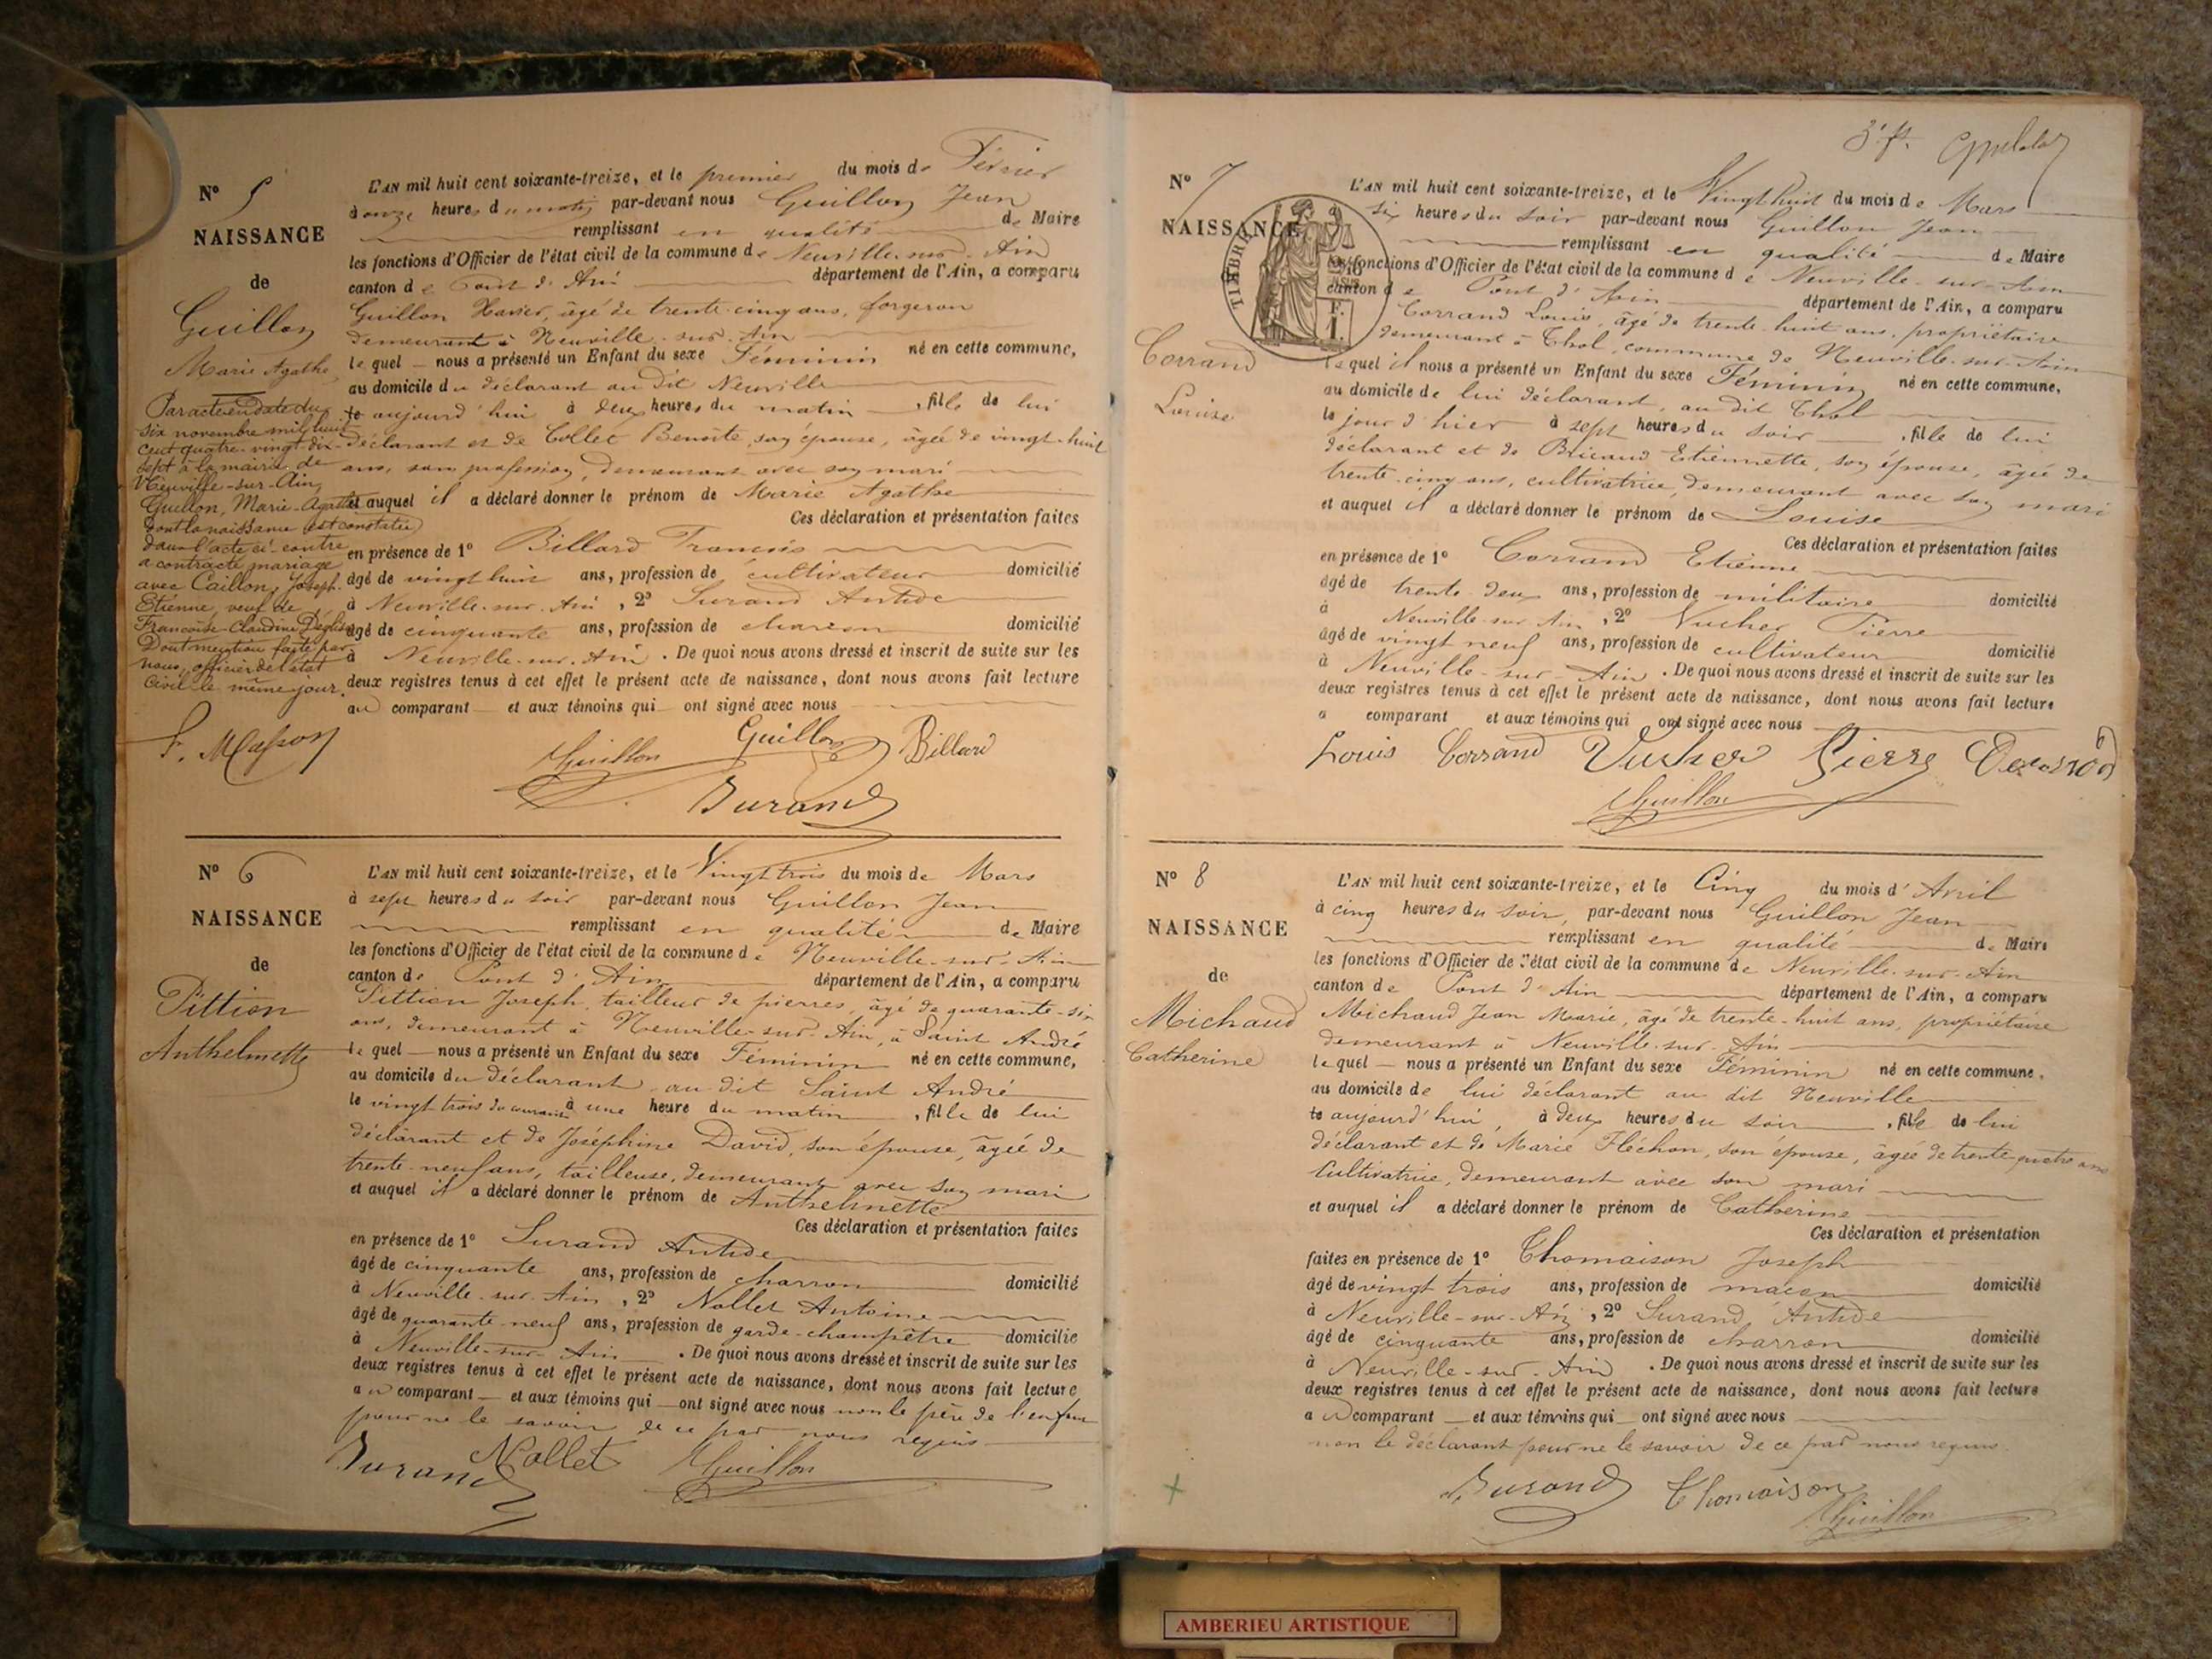 N° 5
NAISSANCE
de
Guillon
Marie Agathe
Par acte en date du
six novembre mil huit
cent quatre-vingt-dix-
sept à la mairie de
Neuville-sur-Ain,
Guillon, Marie-Agathe
dont la naissance est constatée
dans l'acte ci-contre
a contracté mariage
avec Caillon, Joseph-
Etienne, veuf de
Françoise-Claudine
Dont mention faite par
nous, officier de l'état
civil le même jour.
F. Masson
L'AN mil huit cent soixante-treize, et le premier du mois de Février
à onze heures du matin par-devant nous Guillon Jean
remplissant en qualité de Maire
les fonctions d'Officier de l'état civil de la commune de Neuville-sur-Ain
canton de Pont d'Ain département de l'Ain, a comparu
Guillon Xavier, âgé de trente-cinq ans, forgeron
demeurant à Neuville-sur-Ain
lequel nous a présenté un Enfant du sexe Féminin né en cette commune,
au domicile du déclarant au dit Neuville
le aujourd'hui à deux heures du matin, fille de lui
déclarant et de Collet Benoite, son épouse, âgée de vingt-huit
ans, sans profession, demeurant avec son mari
et auquel il a déclaré donner le prénom de Marie Agathe
Ces déclaration et présentation faites
en présence de 1° Billard François
âgé de vingt huit ans, profession de cultivateur domicilié
à Neuville-sur-Ain, 2° Durand Antide
âgé de cinquante ans, profession de charron domicilié
à Neuville-sur-Ain. De quoi nous avons dressé et inscrit de suite sur les
deux registres tenus à cet effet le présent acte de naissance, dont nous avons fait lecture
au comparant et aux témoins qui ont signé avec nous
Guillon Guillon Billard
Durand
N° 6
NAISSANCE
de
Pittion
Anthelmette
L'AN mil huit cent soixante-treize, et le Vingt trois du mois de Mars
à sept heures du soir par-devant nous Guillon Jean
remplissant en qualité de Maire
les fonctions d'Officier de l'état civil de la commune de Neuville-sur-Ain
canton de Pont d'Ain département de l'Ain, a comparu
Pittion Joseph, tailleur de pierres, âgé de quarante-six
ans, demeurant à Neuville-sur-Ain, à Saint André
lequel nous a présenté un Enfant du sexe Féminin né en cette commune,
au domicile du déclarant au dit Saint André
le vingt trois du courant à une heure du matin, fille de lui
déclarant et de Joséphine David, son épouse, âgée de
trente-neuf ans, tailleuse, demeurant avec son mari
et auquel il a déclaré donner le prénom de Anthelmette
Ces déclaration et présentation faites
en présence de 1° Durand Antide
âgé de cinquante ans, profession de charron domicilié
à Neuville-sur-Ain, 2° Nallet Antoine
âgé de quarante-neuf ans, profession de garde-champêtre domicilié
à Neuville-sur-Ain. De quoi nous avons dressé et inscrit de suite sur les
deux registres tenus à cet effet le présent acte de naissance, dont nous avons fait lecture
au comparant et aux témoins qui ont signé avec nous non le père de l'enfant
pour ne le savoir de ce par nous requis
Durand Nallet Guillon
3e ft.
N° 7
NAISSANCE
TIMBRE
Corrand
Louise
L'AN mil huit cent soixante-treize, et le Vingt huit du mois de Mars
six heures du soir par-devant nous Guillon Jean
remplissant en qualité de Maire
les fonctions d'Officier de l'état civil de la commune de Neuville-sur-Ain
canton de Pont d'Ain département de l'Ain, a comparu
Corrand Louis, âgé de trente-huit ans, propriétaire
demeurant à Thol, commune de Neuville-sur-Ain
lequel il nous a présenté un Enfant du sexe Féminin né en cette commune,
au domicile de lui déclarant, au dit Thol
le jour d'hier à sept heures du soir, fille de lui
déclarant et de Bricaud Etiennette, son épouse, âgée de
trente-cinq ans, cultivatrice, demeurant avec son mari
et auquel il a déclaré donner le prénom de Louise
Ces déclaration et présentation faites
en présence de 1° Corrand Etienne
âgé de trente deux ans, profession de militaire domicilié
à Neuville-sur-Ain, 2° Vucher Pierre
âgé de vingt neuf ans, profession de cultivateur domicilié
à Neuville-sur-Ain. De quoi nous avons dressé et inscrit de suite sur les
deux registres tenus à cet effet le présent acte de naissance, dont nous avons fait lecture
a comparant et aux témoins qui ont signé avec nous
Louis Corrand Vucher Pierre
Guillon
N° 8
NAISSANCE
de
Michaud
Catherine
L'AN mil huit cent soixante-treize, et le Cinq du mois d'Avril
à cinq heures du soir, par-devant nous Guillon Jean
remplissant en qualité de Maire
les fonctions d'Officier de l'état civil de la commune de Neuville-sur-Ain
canton de Pont d'Ain département de l'Ain, a comparu
Michaud Jean Marie, âgé de trente-huit ans, propriétaire
demeurant à Neuville-sur-Ain
lequel nous a présenté un Enfant du sexe Féminin né en cette commune,
au domicile de lui déclarant au dit Neuville
le aujourd'hui, à deux heures du soir, fille de lui
déclarant et de Marie Fléchon, son épouse, âgée de trente-quatre ans
Cultivatrice, demeurant avec son mari
et auquel il a déclaré donner le prénom de Catherine
Ces déclaration et présentation
faites en présence de 1° Thomaison Joseph
âgé de vingt trois ans, profession de maçon domicilié
à Neuville-sur-Ain, 2° Durand Antide
âgé de cinquante ans, profession de charron domicilié
à Neuville-sur-Ain. De quoi nous avons dressé et inscrit de suite sur les
deux registres tenus à cet effet le présent acte de naissance, dont nous avons fait lecture
au comparant et aux témoins qui ont signé avec nous
non le déclarant pour ne le savoir de ce par nous requis.
Durand Thomaison
Guillon
AMBERIEU ARTISTIQUE